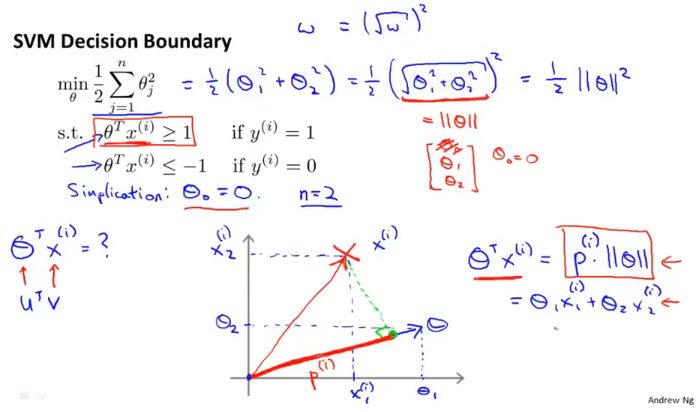 ω = (√ω)²
SVM Decision Boundary
min_θ ½ ∑_{j=1}^{n} θ_j² = ½ (θ₁² + θ₂²) = ½ (√(θ₁² + θ₂²))² = ½ ||θ||²
= ||θ||
s.t. θᵀx⁽ⁱ⁾ ≥ 1 if y⁽ⁱ⁾ = 1
θᵀx⁽ⁱ⁾ ≤ −1 if y⁽ⁱ⁾ = 0
[θ₁ θ₂] θ₀ = 0
Simplication: θ₀ = 0. n=2
θᵀx⁽ⁱ⁾ = ?
uᵀv
x₂⁽ⁱ⁾
x⁽ⁱ⁾
θ₂
θ
p⁽ⁱ⁾
x₁⁽ⁱ⁾
θ₁
θᵀx⁽ⁱ⁾ = p⁽ⁱ⁾ · ||θ|| ←
= θ₁x₁⁽ⁱ⁾ + θ₂x₂⁽ⁱ⁾ ←
Andrew Ng